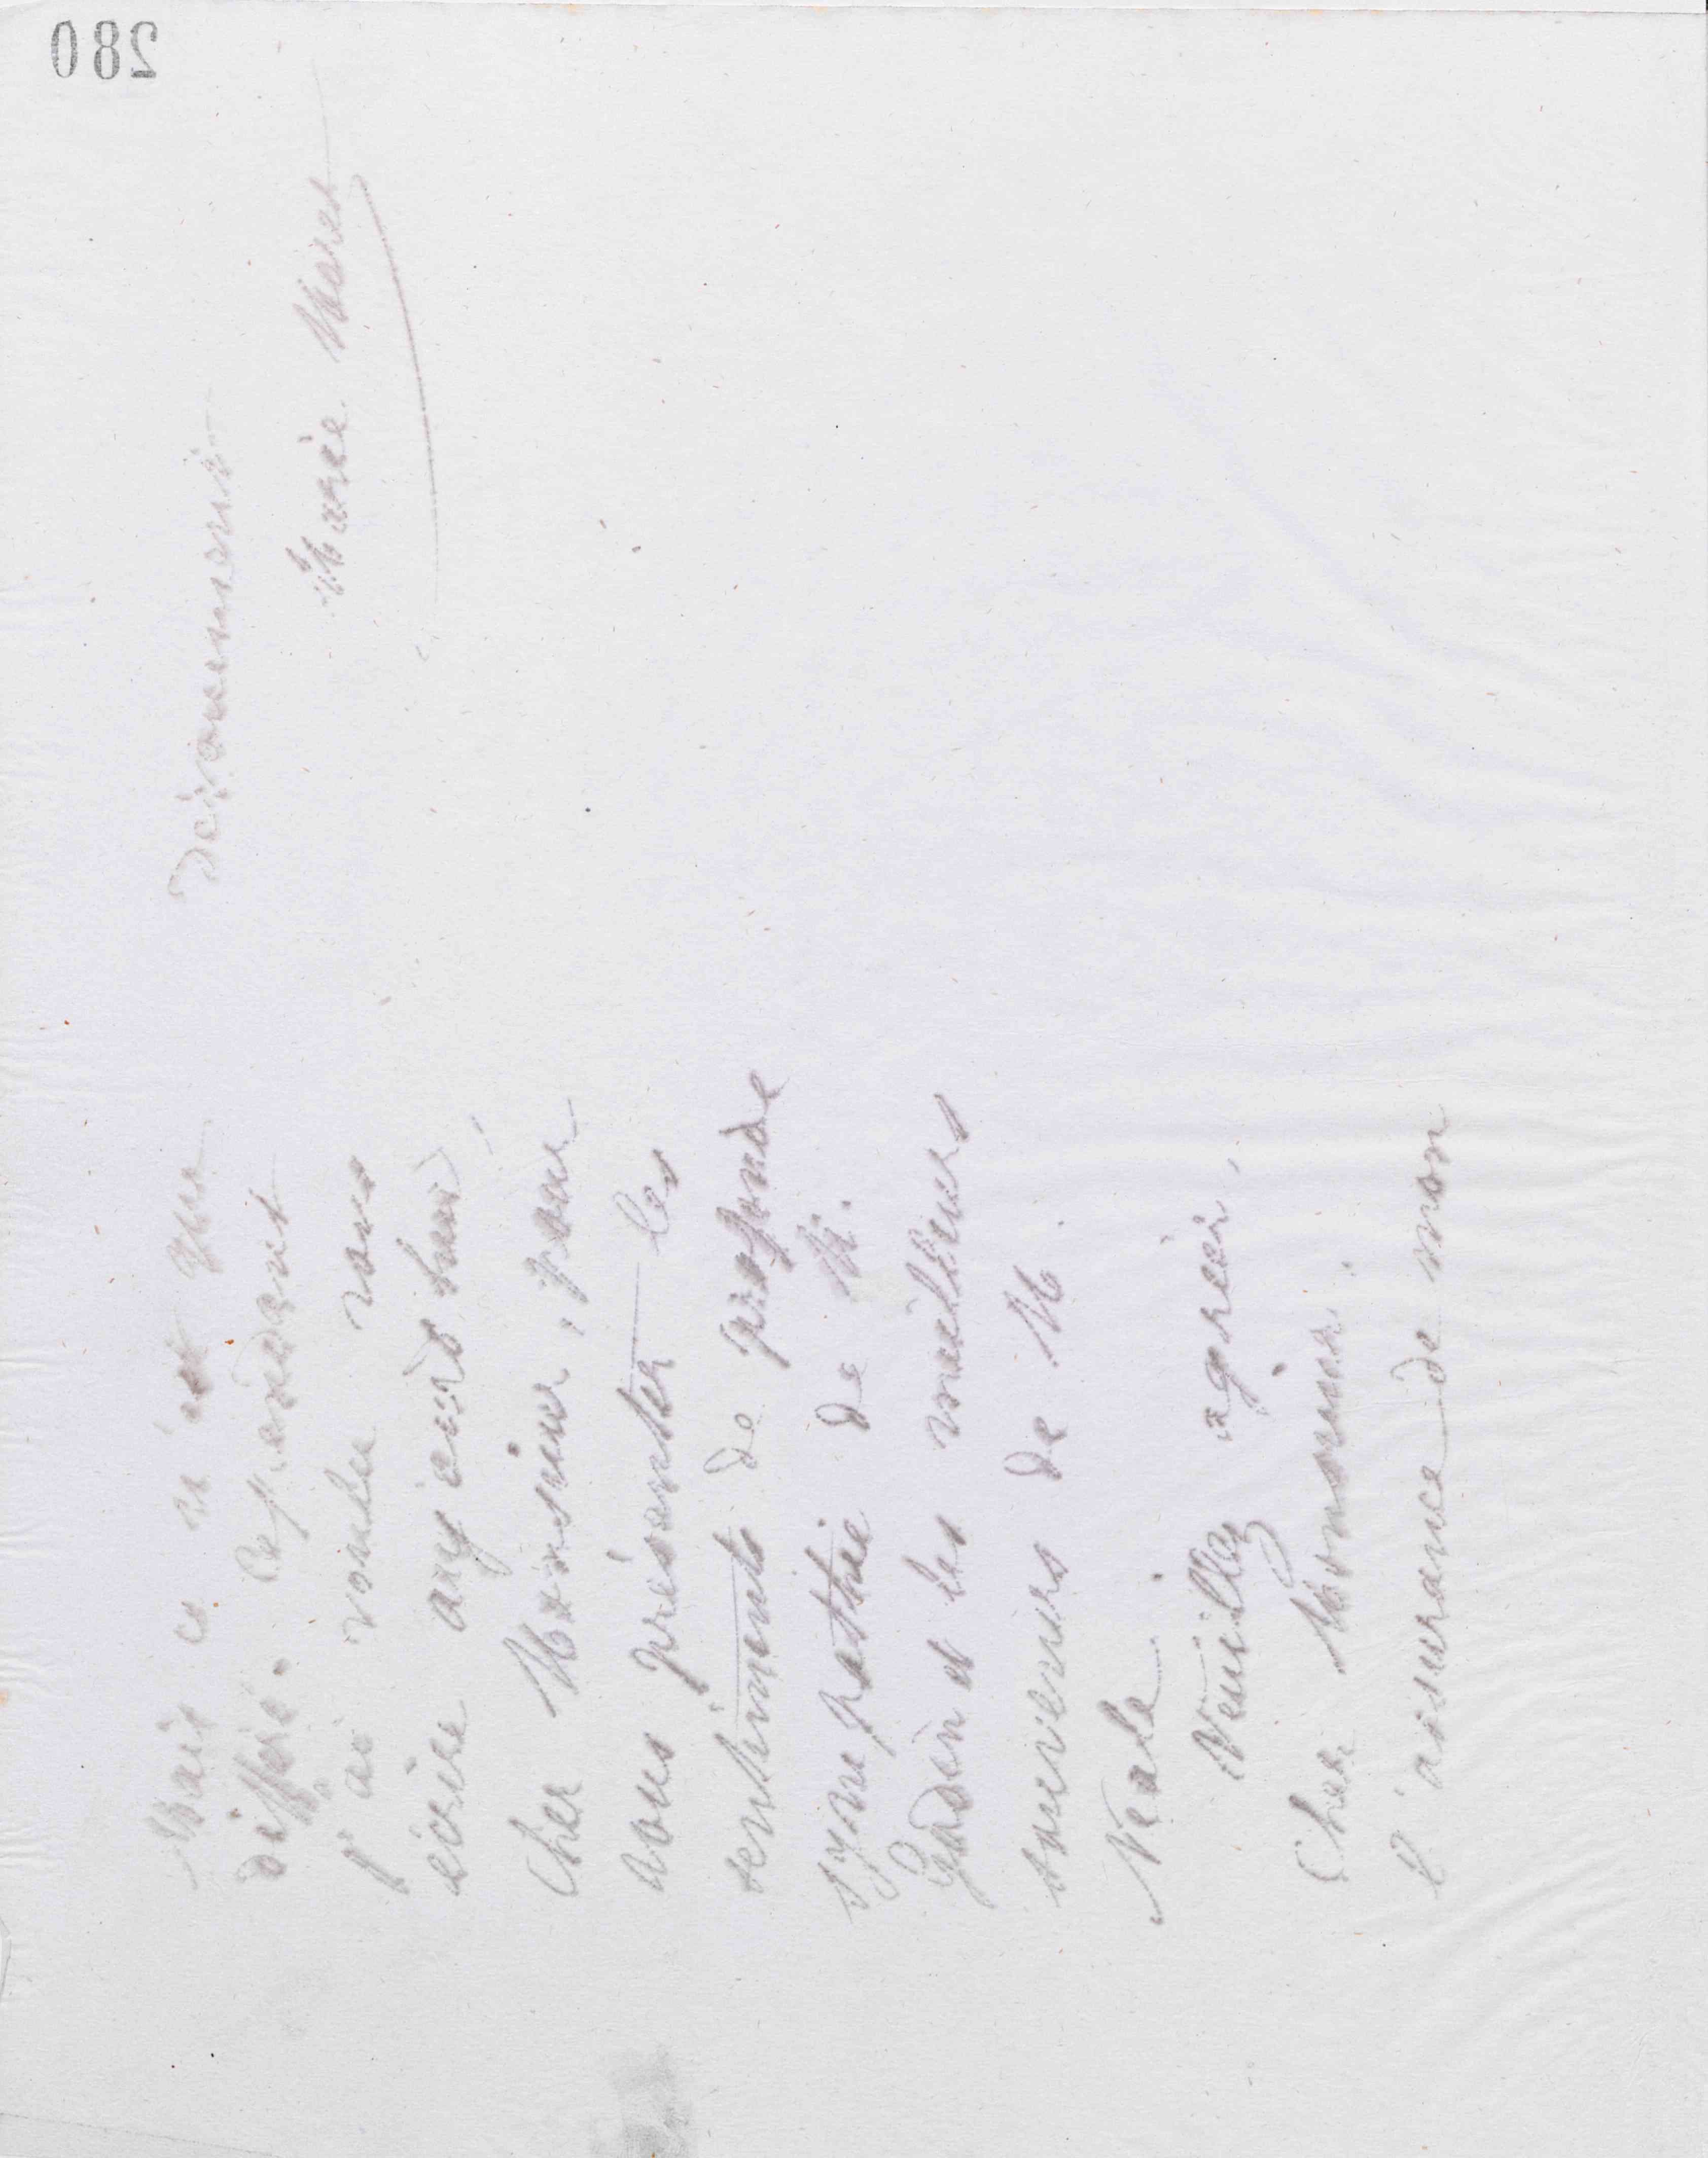 280
Mais ce n'est que
différé. Cependant
j'ai voulu vous
écrire aujourd'hui,
Cher Monsieur, pour
vous présenter les
sentiments de profonde
sympathie de M.
Godin et les meilleurs
souvenirs de M.
Neale.
Veuillez agréer,
Cher Monsieur,
l'assurance de mon
dévouement
Marie Moret